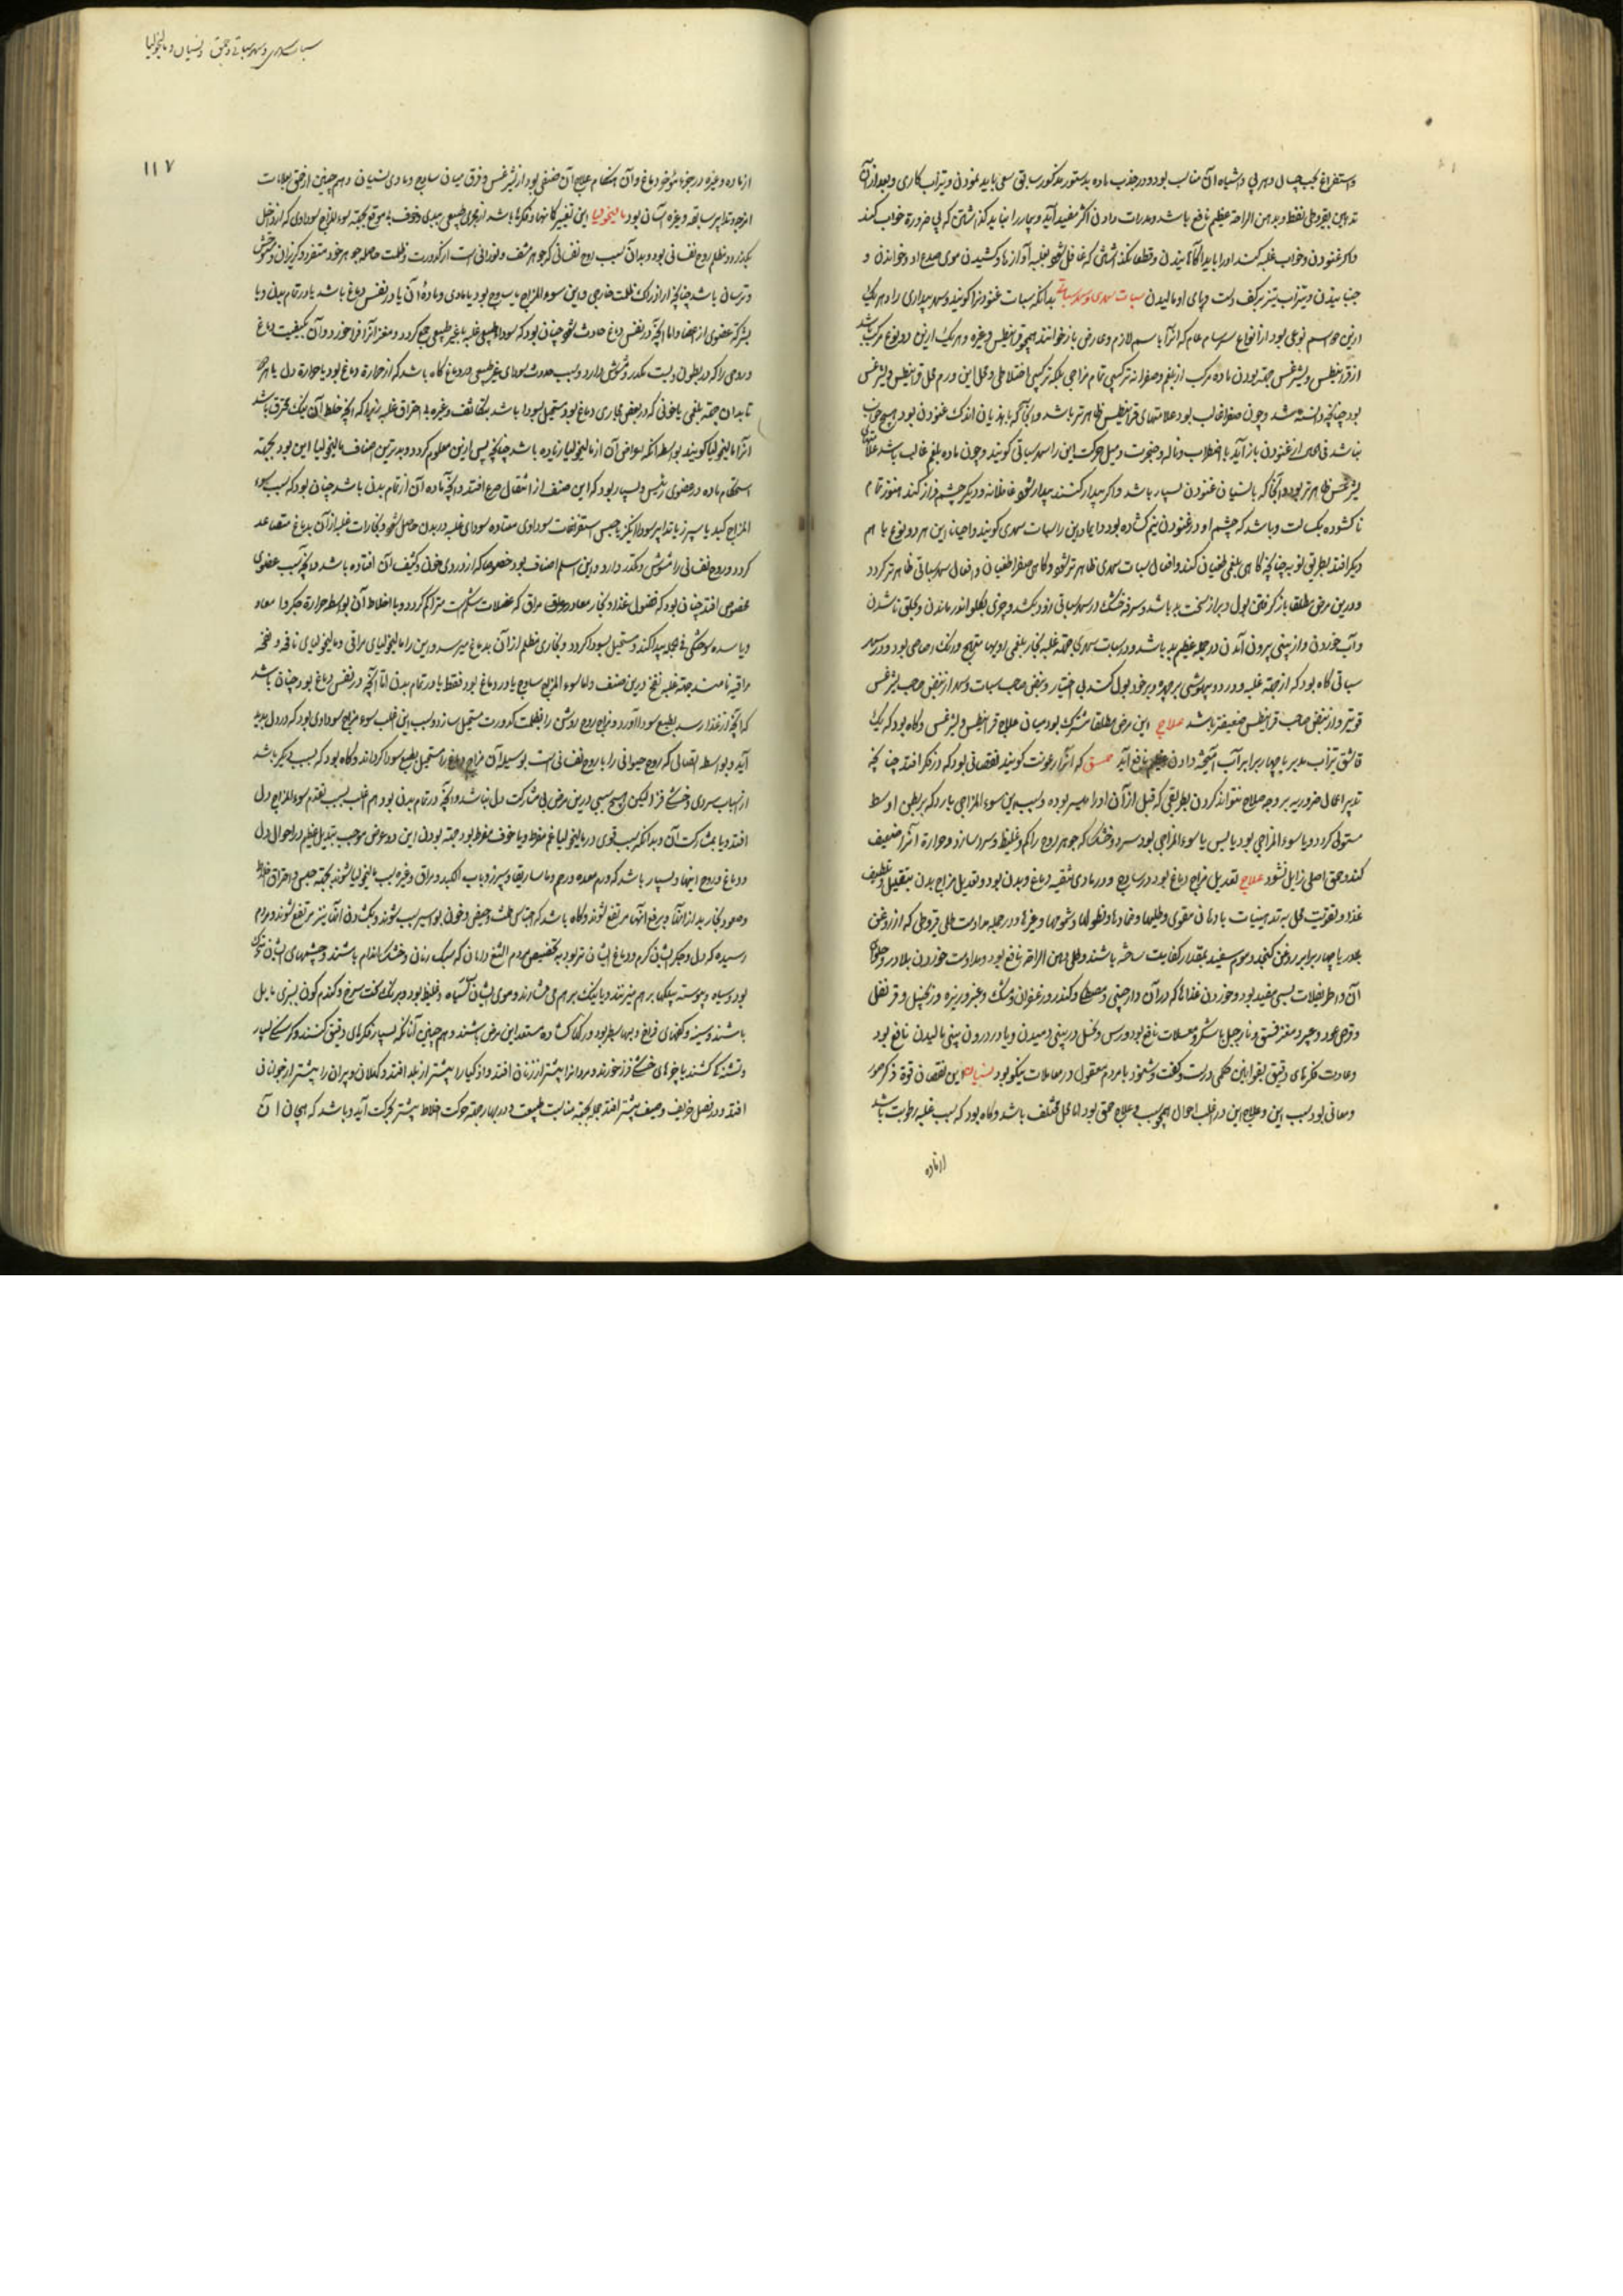 واستفراغ بحب و اشباه آن مناسب بود و در جذب ماده بدستور مذکور سابق سعی باید نمودن و تیزاب کاری و بعد از آن
تدهین بقیروطی نفط و بدهن الراحة عظیم نافع باشد و مدرات دادن اکثر مفید آید و بیمار را نباید گذاشتن که بی ضرورة خواب کند
و اگر غنودن و خواب غلبه کند او را باید آگاهانیدن و قطعا نگذاشتن که غافل شود بغلبه آوازها و کشیدن موی صدغ او و خواندن و
جنبانیدن و تیزاب تیز بر کف دست و پای او مالیدن سبات سهری و سهر سباتی بدانکه سبات غنودن را گویند و سهر بیداری را و هر یک
ازین دو اسم نوعی بود از انواع سرسام عام که آنرا باسم لازم و عارض باز خوانند همچو قرانیطس و غیره و هر یک ازین دو نوع مرکب باشد
از قرانیطس و لیثرغس جهة بودن ماده مرکب از بلغم و صفرا نه ترکیبی تمام مزاجی بلکه ترکیبی اختلاطی و محل این ورم محل قرانیطس و لیثرغس
بود چنانچه دانسته شد و چون صفرا غالب بود علامتهای قرانیطس ظاهرتر باشد و آنجا که با هذیان اندک غنودن بود و هیچ خواب
نباشد فی الحال از غنودن باز آید با اضطراب و ناله و ضجرت و میل حرکت این را سهر سباتی گویند و چون ماده بلغم غالب باشد علامتهای
لیثرغس ظاهرتر بود و آنجا که با نسیان غنودن بسیار باشد و اگر بیدار کنند بیدار شود غافلانه و دیگر چشم فراز کند هنوز تمام
ناگشوده یک ساعت و باشد که چشم او در غنودن نیم گشاده بود دایما و این را سبات سهری گویند و احیانا این هر دو نوع با هم
دیگر افتد بطریق نوبه چنانچه گاهی بلغمی طغیان کند و افعال سبات سهری ظاهرتر شود و گاهی صفرا طغیان و افعال سهر سباتی ظاهرتر گردد
و درین مرض مطلقا باز گرفتن بول و براز سخت بد باشد و سرفه خشک در سهر سباتی زود بکشد و چیزی بگلو اندر ماندن و بحلق ناشدن
و آب خوردن و از بینی بیرون آمدن در جمله عظیم بد باشد و در سبات سهری جهة غلبه بخار بلغمی رویها متهیج و رنگ رصاصی بود و در سهر
سباتی گاه بود که از جهة غلبه و درد و بیهوشی بر چهره و بر خود بول کند بی اختیار و نبض صاحب سبات و سهر از نبض صاحب لیثرغس
قویتر و از نبض صاحب قرانیطس ضعیفتر باشد علاج این مرض مطلقا مشترک بود میان علاج قرانیطس و لیثرغس و گاه بود که یک
قاشق تیزاب مدبر با چهار برابر آب آمیخته دادن عظیم نافع آید حمق که آنرا رعونت گویند نقصانی بود که در فکر افتد چنانچه
تدبیر اعمال ضروریه بر وجه صلاح نتواند کردن بطریقی که قبل از آن او را میسر بوده و سبب این سوء المزاجی بارد که بر بطن اوسط
مستولی گردد و یا سوء المزاجی بود یابس یا سوء المزاجی بود سرد و خشک که جوهر روح را کم و غلیظ و سرد سازد و حرارة آنرا ضعیف
کند و حمق اصلی زایل نشود علاج تعدیل مزاج دماغ بود در ساذج و در مادی تنقیه دماغ و بدن بود و تعدیل مزاج بدن بتقلیل و تلطیف
غذا و تقویت محل به تدهینیات بادهان مقوی و طلیها و ضمادها و نطولها و شمومها و غیرها و در جمله مداومت طلی قیروطی که از روغن
بلادر با چهار برابر روغن کنجد و موم سفید بمقدار کفایت ساخته باشند و طلی دهن الراحة نافع بود و مداومت خوردن بلادر و حلوای
آن و اطریفلات بسی مفید بود و خوردن غذاها که در آن دارچینی و مصطکی و کندر و زعفران و مشک و عنبر و زیره و زنجبیل و قرنفل
و قرص عود و عبیر و مغز فستق و نارجیل با شکر و عسلات نافع بود و رس و خل در بینی دمیدن و یا در درون بینی مالیدن نافع بود
و عادت فکرهای دقیق بقوانین حکمی درست و گفت و شنود با مردم معقول در معاملات نیکو بود نسیان این نقصان قوة ذکر صور
و معانی بود سبب این و علاج این در اغلب احوال همچو سبب و علاج حمق بود اما محل مختلف باشد و گاه بود که سبب غلبه رطوبت باشد
از ماده
سبات سهری و سهر سباتی و حمق و نسیان و مالیخولیا
۱۱۷
از ماده و غیره در جزء مؤخر دماغ و آن هنگام علاج آن صنفی بود از لیثرغس و فرق میان ساذج و مادی نسیان و همچنین از حمق بعلامات
امزجه و تدابیر سابقه و غیره آسان بود مالیخولیا این تغییر گمانها و فکرها باشد از مجری طبیعی ببدی و خوف بی موقع بجهة سوء المزاج سوداوی که از داخل
مکدر و مظلم روح نفسانی بود و بدان سبب روح نفسانی که جوهر شفاف و نورانی است از کدورت و ظلمت حاصله جوهر خود متنفر و گریزان و متوحش
و ترسان باشد چنانچه از ادراک ظلمت خارجی و این سوء المزاج یا ساذج بود یا مادی و ماده آن یا در نفس دماغ باشد یا در تمام بدن و یا
بشرکة عضوی از اعضا و اما آنچه در نفس دماغ حادث شود چنان بود که سودا طبیعی غلبه یا غیر طبیعی جمع گردد و مغز آنرا فرا خورد و آن بکیفیت دماغ
و روحی را که در بطون اوست مکدر و مشوش دارد و سبب حدوث سودای غیر طبیعی در دماغ گاه باشد که از حرارة دماغ بود یا حرارة دل یا هر دو
تا بدان جهة بلغمی یا خونی که در بعض مجاری دماغ بود مستحیل بسودا باشد بتکاثف و غیره بی احتراق غلبه زیرا که آنچه خلط آن نیک محترق باشد
آنرا مانیا گویند بواسطه آنکه اعراض آن از مالیخولیا زیاده باشد چنانچه پس ازین معلوم گردد و بدترین اصناف مالیخولیا این بود بجهة
استحکام ماده در عضوی رئیس و بسیار بود که این صنف از انتقال صرع افتد و آنچه ماده آن از تمام بدن باشد چنان بود که سبب سوء
المزاج کبد یا سپرز یا تدابیر سودا انگیز یا حبس استفراغات سوداوی معتاده سودای غلبه در بدن حاصل شود و بخارات غلبه از آن بدماغ متصاعد
گردد و روح نفسانی را مشوش و مکدر دارد و این اسلم اصناف بود خصوصا که از دردی خون و کثیف آن افتاده باشد و آنچه سبب عضوی
مخصوص افتد چنان بود که فضول غذا و بخار معا در مراق که عضلات شکم است متراکم گردد و با اخلاط آن بواسطه حرارة جگر و امعاء
و یا سده سوختگی فی الجمله پیدا کند و مستحیل بسودا گردد و بخاری مظلم از آن بدماغ میرسد و این را مالیخولیای مراقی و مالیخولیای نافخه و نفخه
مراقیه نامند جهة غلبه نفخ درین صنف و اما سوء المزاج ساذج یا در دماغ بود فقط یا در تمام بدن اما آنچه در نفس دماغ بود چنان باشد
که آنچه از غذا رسد بطبع سودا آورد و مزاج روح روشن را بظلمت کدورت مستحیل سازد و سبب این اغلب سوء مزاج سوداوی بود که در دل پدید
آید و بواسطه اتصالی که روح حیوانی را با روح نفسانی است بوسیله آن مزاج دماغ را مستحیل بطبع سودا گرداند و گاه بود که سبب دیگر باشد
از اسباب سردی و خشکی فزا لیکن هیچ سببی درین مرض بی مشارکت دل نباشد و آنچه در تمام بدن بود هم اغلب سبب تقدم سوء المزاج دل
افتد و یا بمشارکت آن و بدانکه سبب قوی در مالیخولیا غم مفرط و یا خوف مفرط بود جهة بودن این دو عرض موجب تبدیل عظیم در احوال دل
و دماغ و روح اینها و بسیار باشد که ورم معده و رحم و ماساریقا و سپرز و باب الکبد و مراق و غیره سبب مالیخولیا شوند بجهة حبس و احتراق اخلاط
و صعود بخار بد از آنها و برفع آنها مرتفع شوند و گاه باشد که احتباس طمث و حیض و خون بواسیر سبب شوند و بگشادن آنها نیز مرتفع شوند و مردم
رسیده که دل و جگر ایشان گرم و دماغ ایشان تر بود بتخصیص مردم الثغ زبان که سبک زبان و خشک اندام باشند و چشمهای ایشان کوچک
بود و سیاه و پیوسته پلکها بر هم میزنند و یا نیک بر هم می فشارند و موی ایشان سیاه و غلیظ بود و برنگ سخت سرخ و گندم گون بسبزی مایل
باشند و سینه و کتفهای فراخ و لبها سطبر بود و رگها گشاده مستعد این مرض باشند و همچنین آنانکه بسیار فکرهای دقیق کنند و گرسنگی بسیار
و تشنگی کشند یا خوهای خشکی فزا خورند و مردانرا بیشتر از زنان افتد و اذکیا را بیشتر از بلد افتد و کهلان و پیران را بیشتر از جوانانی
افتد و در فصل خریف و صیف بیشتر افتد جمله بجهة مناسبت طبیعت و در بهار جهة حرکت اخلاط بیشتر بحرکت آید و باشد که هیجان آن